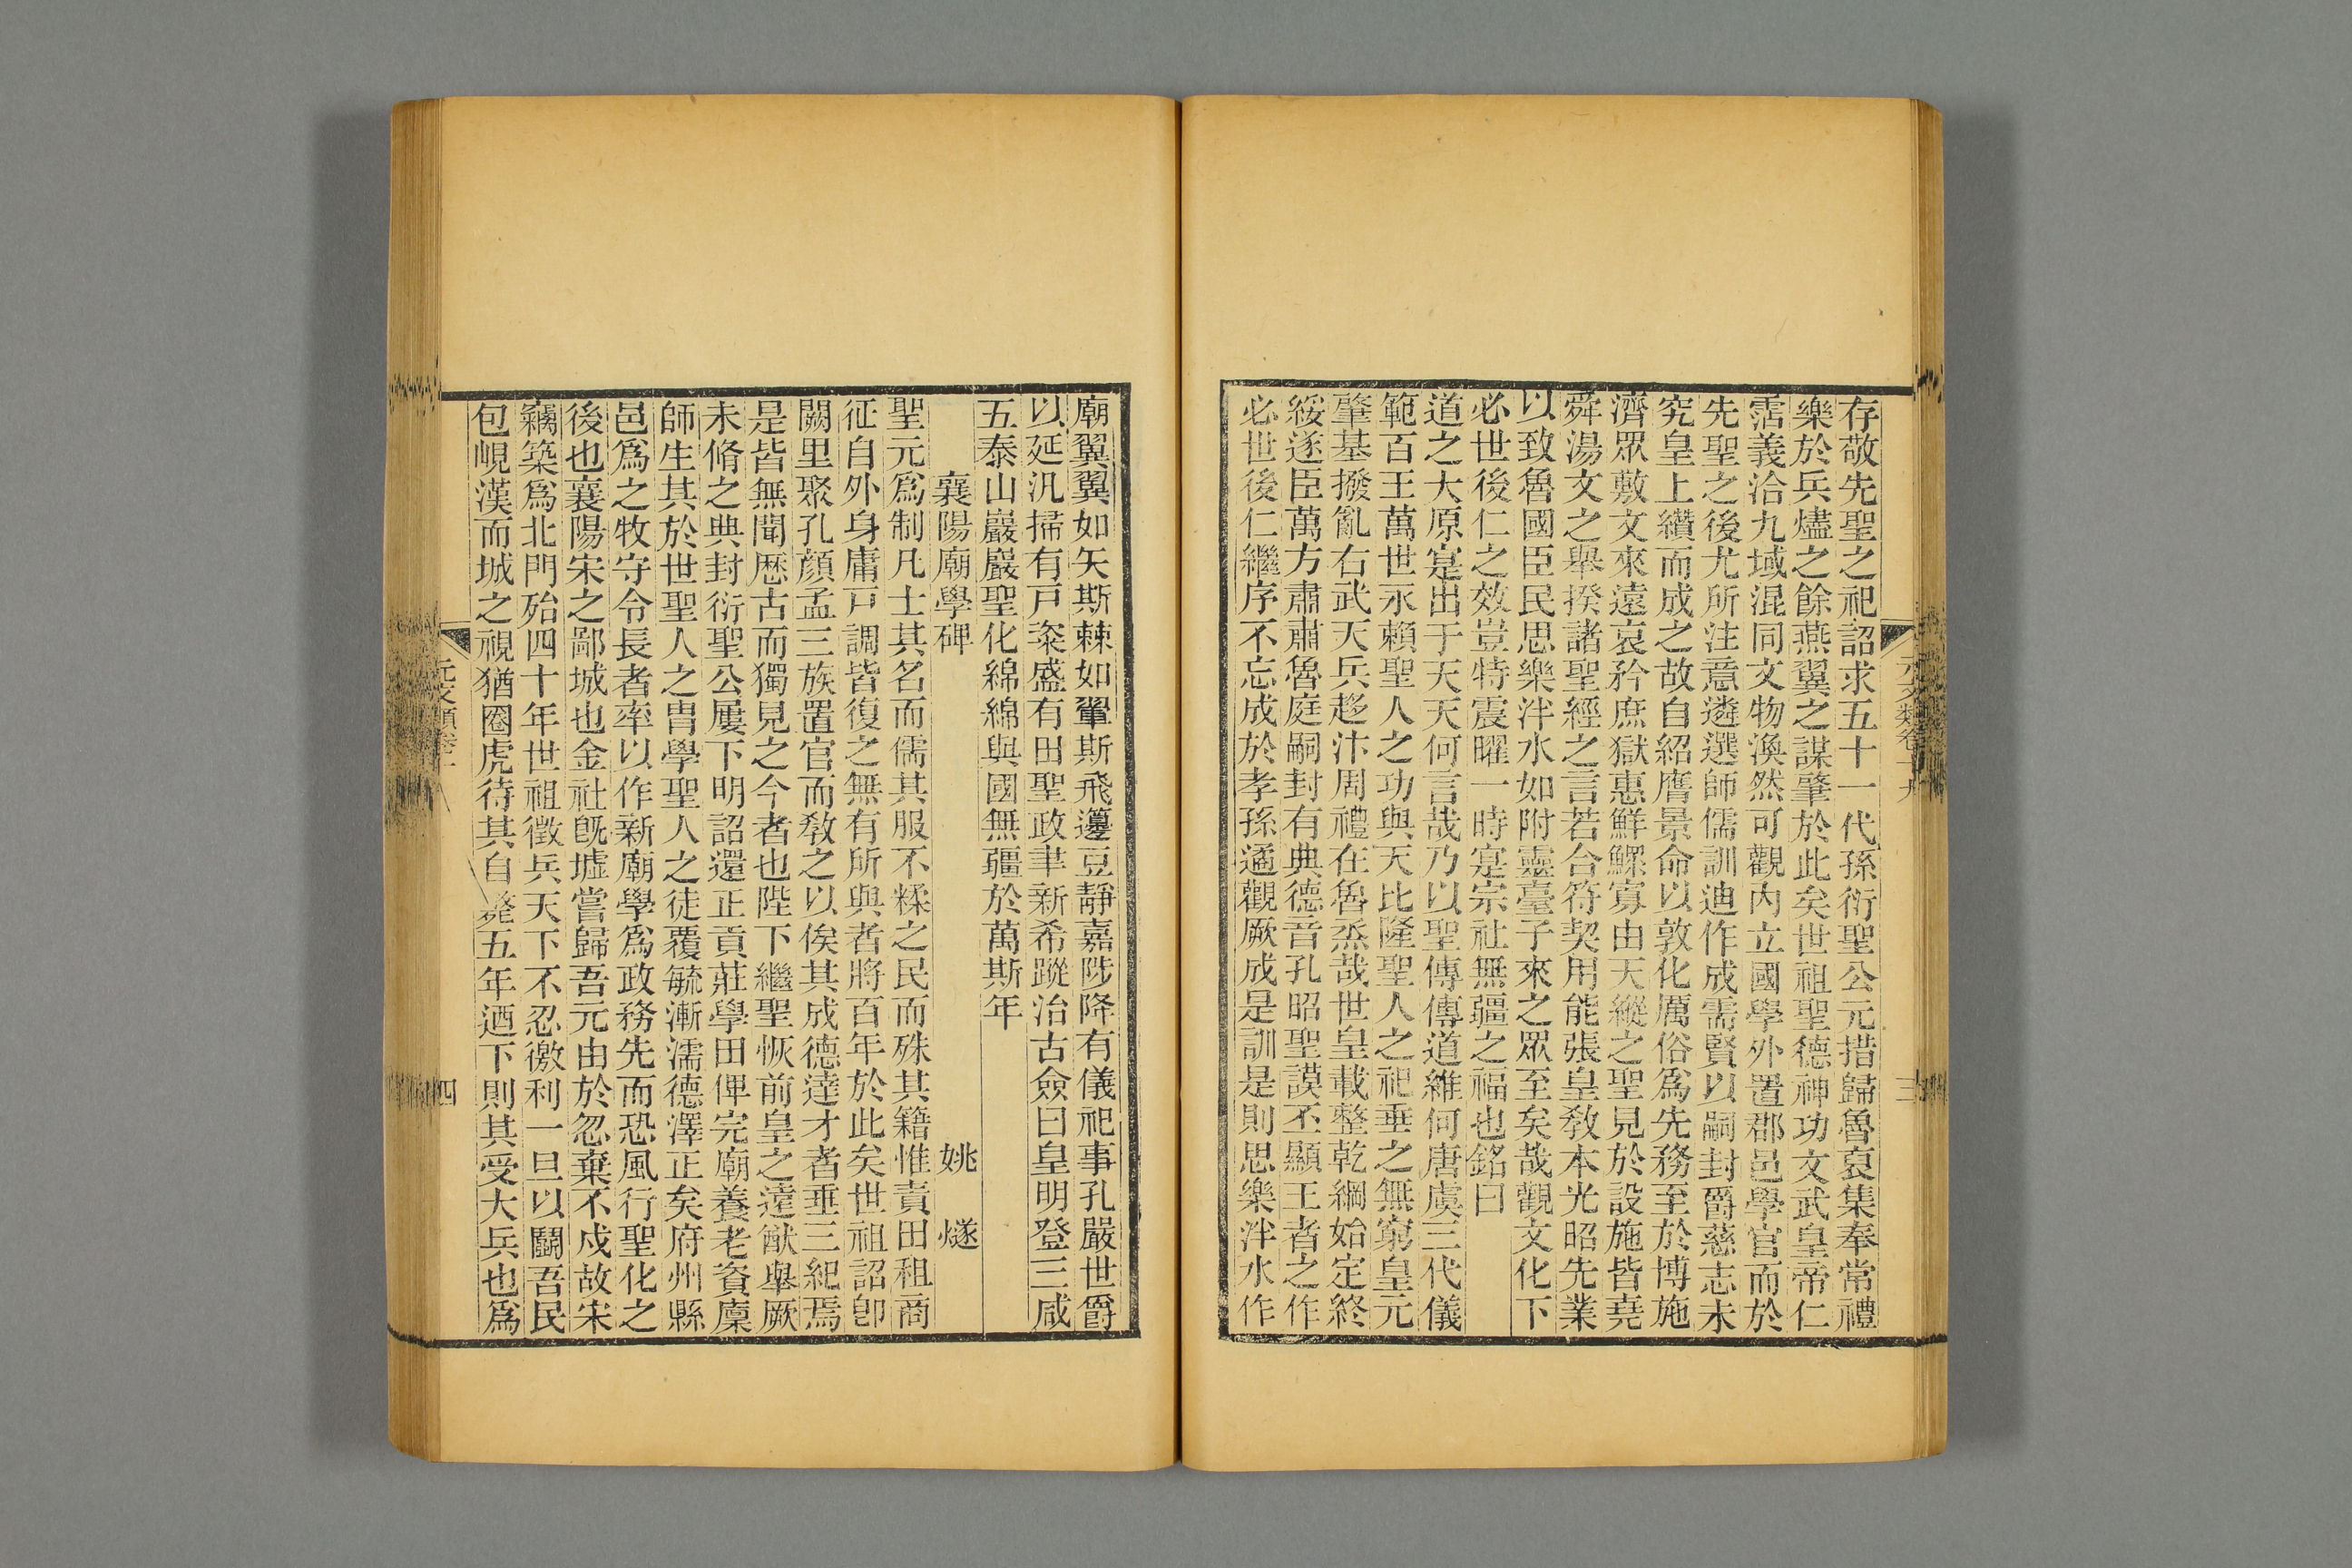 存敬先聖之祀詔求五十一代孫衍聖公元措歸魯裒集奉常禮
樂於兵燼之餘燕翼之謀肇於此矣世祖聖德神功文武皇帝仁
霑義洽九域混同文物渙然可觀內立國學外置郡邑學官而於
先聖之後尤所注意遴選師儒訓迪作成需賢以嗣封爵慈志未
究皇上纘而成之故自紹膺景命以敦化厲俗爲先務至於博施
濟眾敷文來遠哀矜庶獄惠鮮鰥寡由天縱之聖見於設施皆堯
舜湯文之舉揆諸聖經之言若合符契用能張皇敎本光昭先業
以致魯國臣民思樂泮水如附靈臺子來之眾至矣哉觀文化下
必世後仁之效豈特震曜一時寔宗社無疆之福也銘曰
道之大原寔出于天天何言哉乃以聖傳傳道維何唐虞三代儀
範百王萬世永賴聖人之功與天比隆聖人之祀垂之無窮皇元
肇基撥亂右武天兵趍汴周禮在魯烝哉世皇載整乾綱始定終
綏遂臣萬方肅肅魯庭嗣封有典德音孔昭聖謨丕顯王者之作
必世後仁繼序不忘成於孝孫遹觀厥成是訓是則思樂泮水作
元文類卷十九
三
廟翼翼如矢斯棘如翬斯飛籩豆靜嘉陟降有儀祀事孔嚴世爵
以延汎掃有戸粢盛有田聖政聿新希蹤治古僉曰皇明登三咸
五泰山巖巖聖化綿綿與國無疆於萬斯年
襄陽廟學碑 姚燧
聖元爲制凡士其名而儒其服不糅之民而殊其籍惟責田租商
征自外身庸戸調皆復之無有所與者將百年於此矣世祖詔卽
闕里聚孔顔孟三族置官而敎之以俟其成德達才者垂三紀焉
是皆無聞歷古而獨見之今者也陛下繼聖恢前皇之遠猷舉厥
未脩之典封衍聖公屢下明詔還正貢莊學田俾完廟養老資廩
師生其於世聖人之胄學聖人之徒覆毓漸濡德澤正矣府州縣
邑爲之牧守令長者率以作新廟學爲政務先而恐風行聖化之
後也襄陽宋之鄙城也金社旣墟嘗歸吾元由於忽棄不戍故宋
竊築爲北門殆四十年世祖徵兵天下不忍徼利一旦以鬭吾民
包峴漢而城之視猶圈虎待其自斃五年迺下則其受大兵也爲
元文類卷十
四